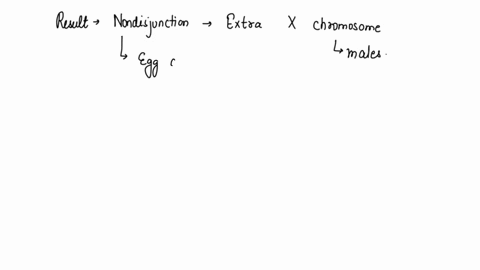 Result → Nondisjunction → Extra X chromosome
↳ Egg (
↳ males.